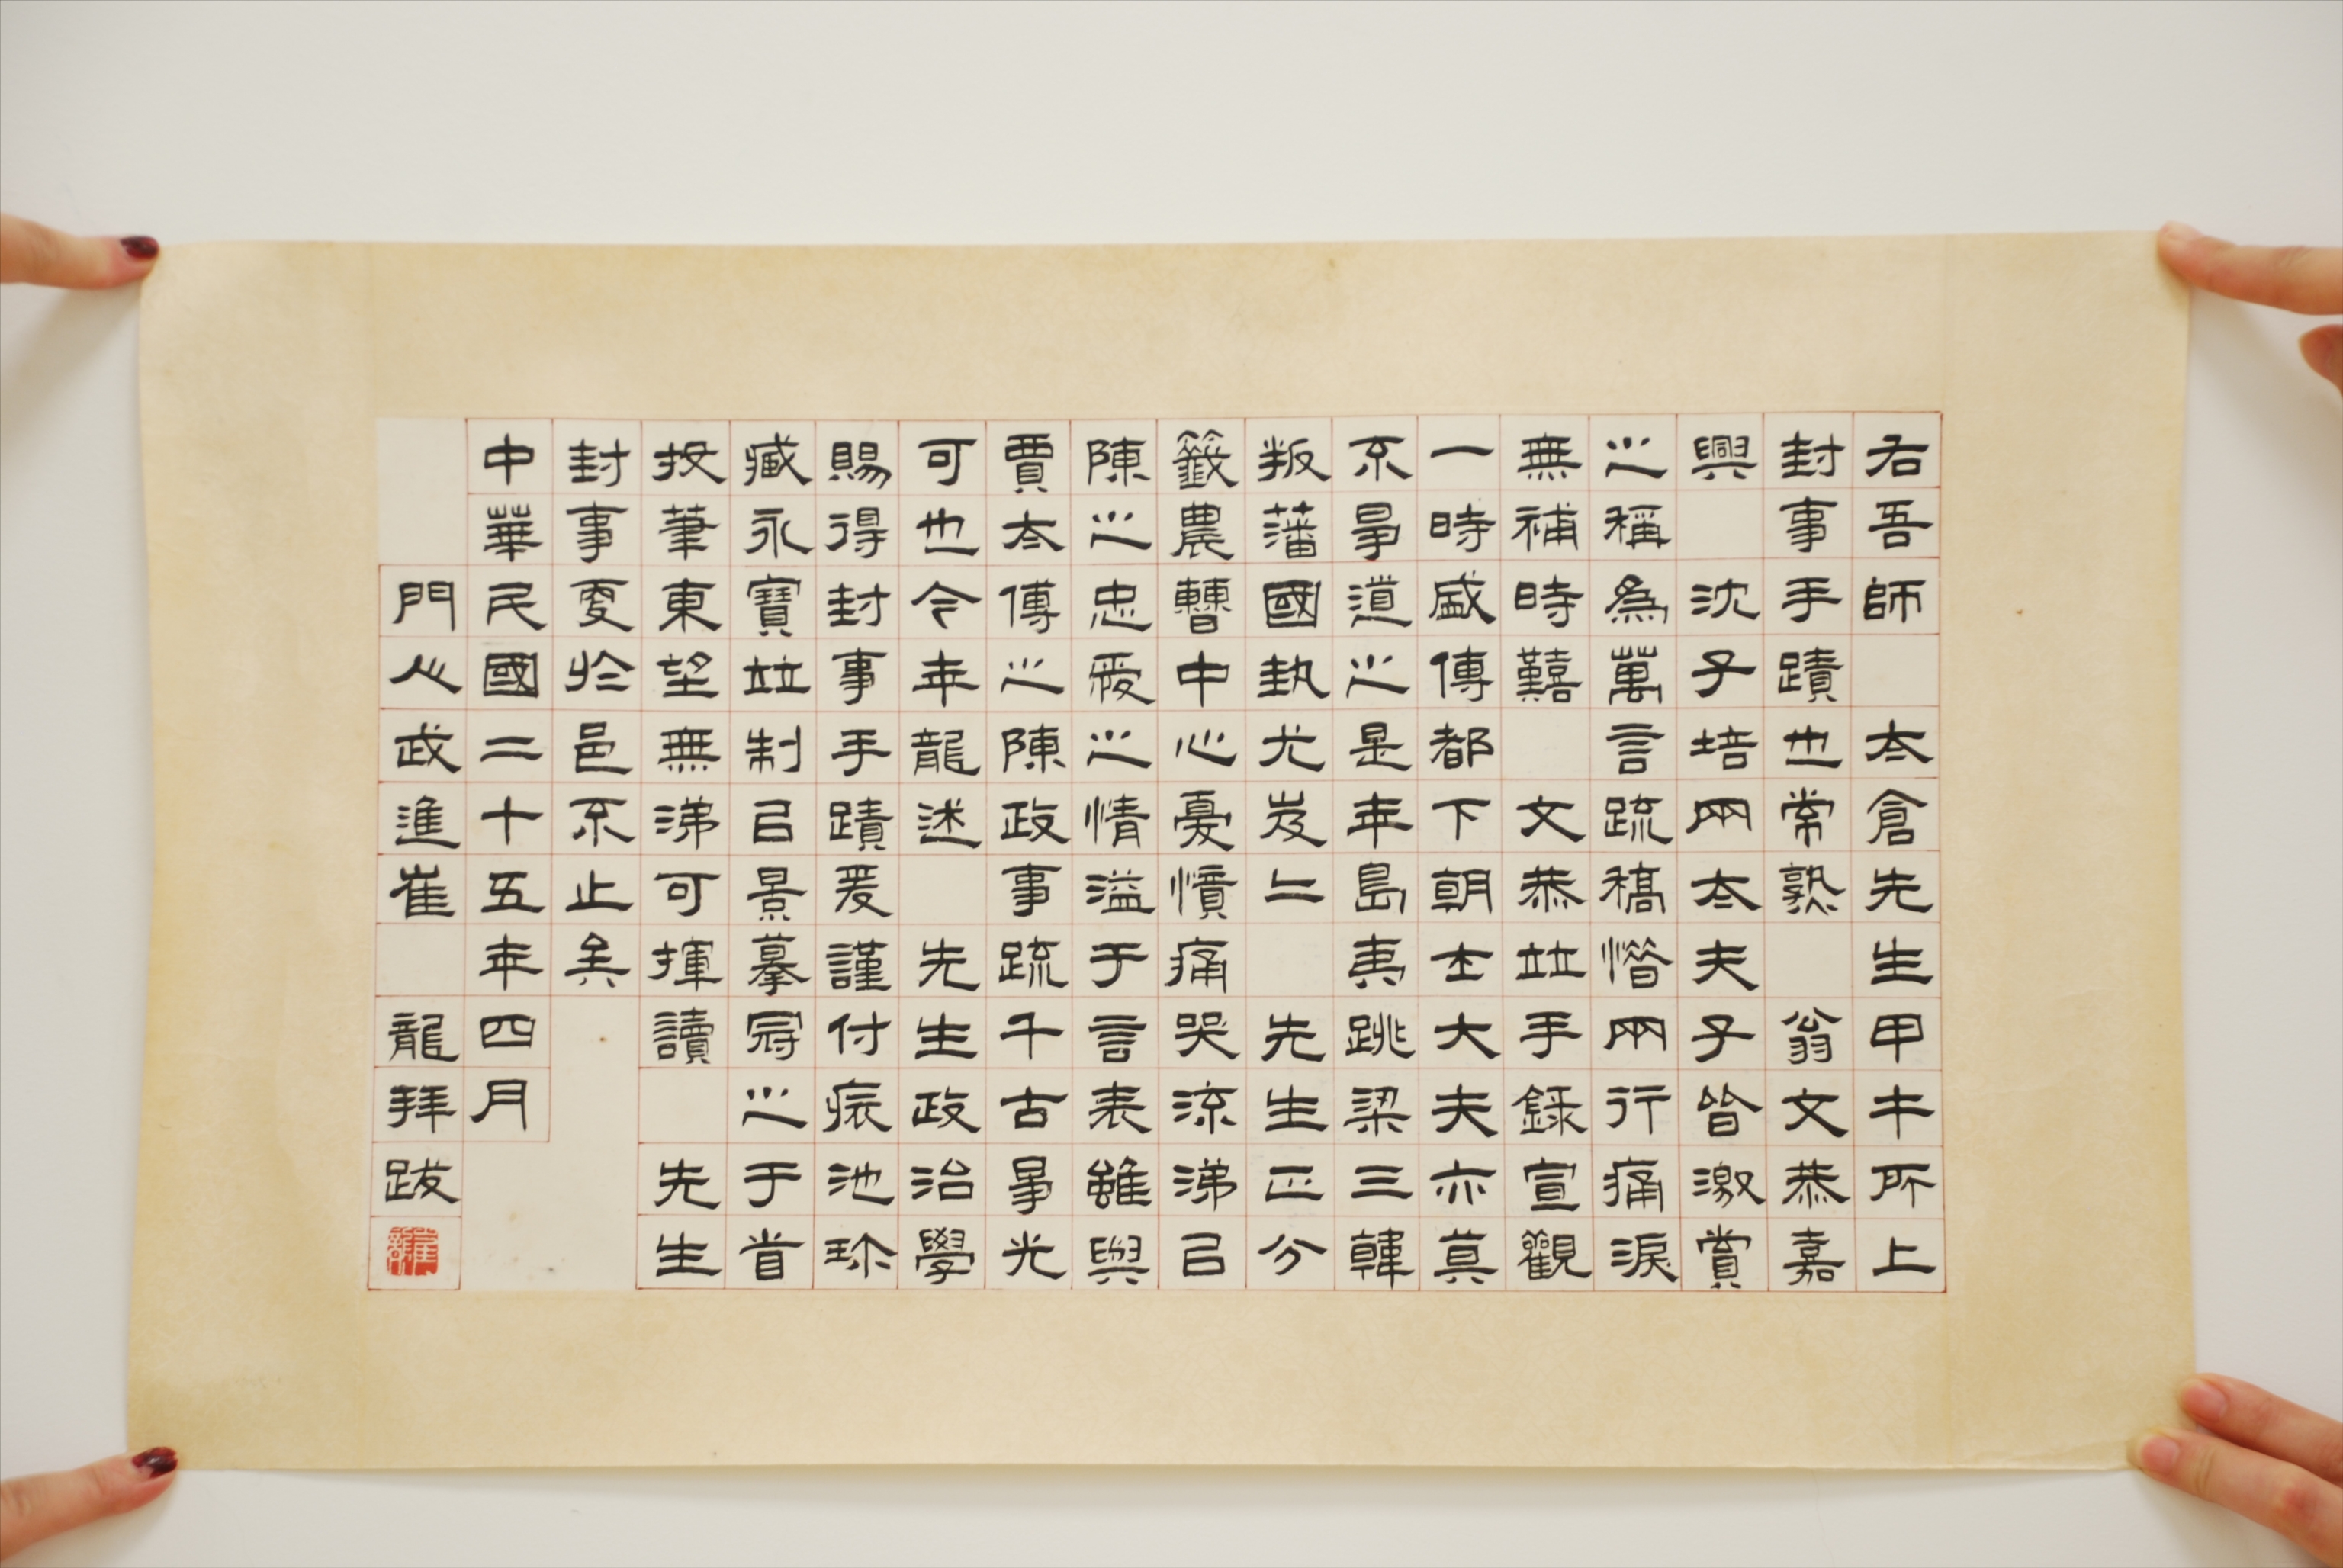 右吾師 太倉先生甲午所上
封事手蹟也常熟 翁文恭嘉
興 沈子培兩太夫子皆激賞
之稱為萬言疏稿憯兩行痛淚
無補時囏 文恭竝手錄宣觀
一時盛傳都下朝士大夫亦莫
不曑道之是年島夷跳梁三韓
叛藩國埶尤岌二 先生正分
籤農曹中心憂憤痛哭流涕㠯
陳之忠愛之情溢于言表雖與
賈太傅之陳政事疏千古曑光
可也今年龍述 先生政治學
賜得封事手蹟爰謹付池珍
臧永寶竝制㠯景摹冠之于首
投筆東望無涕可揮讀 先生
封事更於邑不止矣
中華民國二十五年四月
門人武進崔 龍拜跋
崔龍